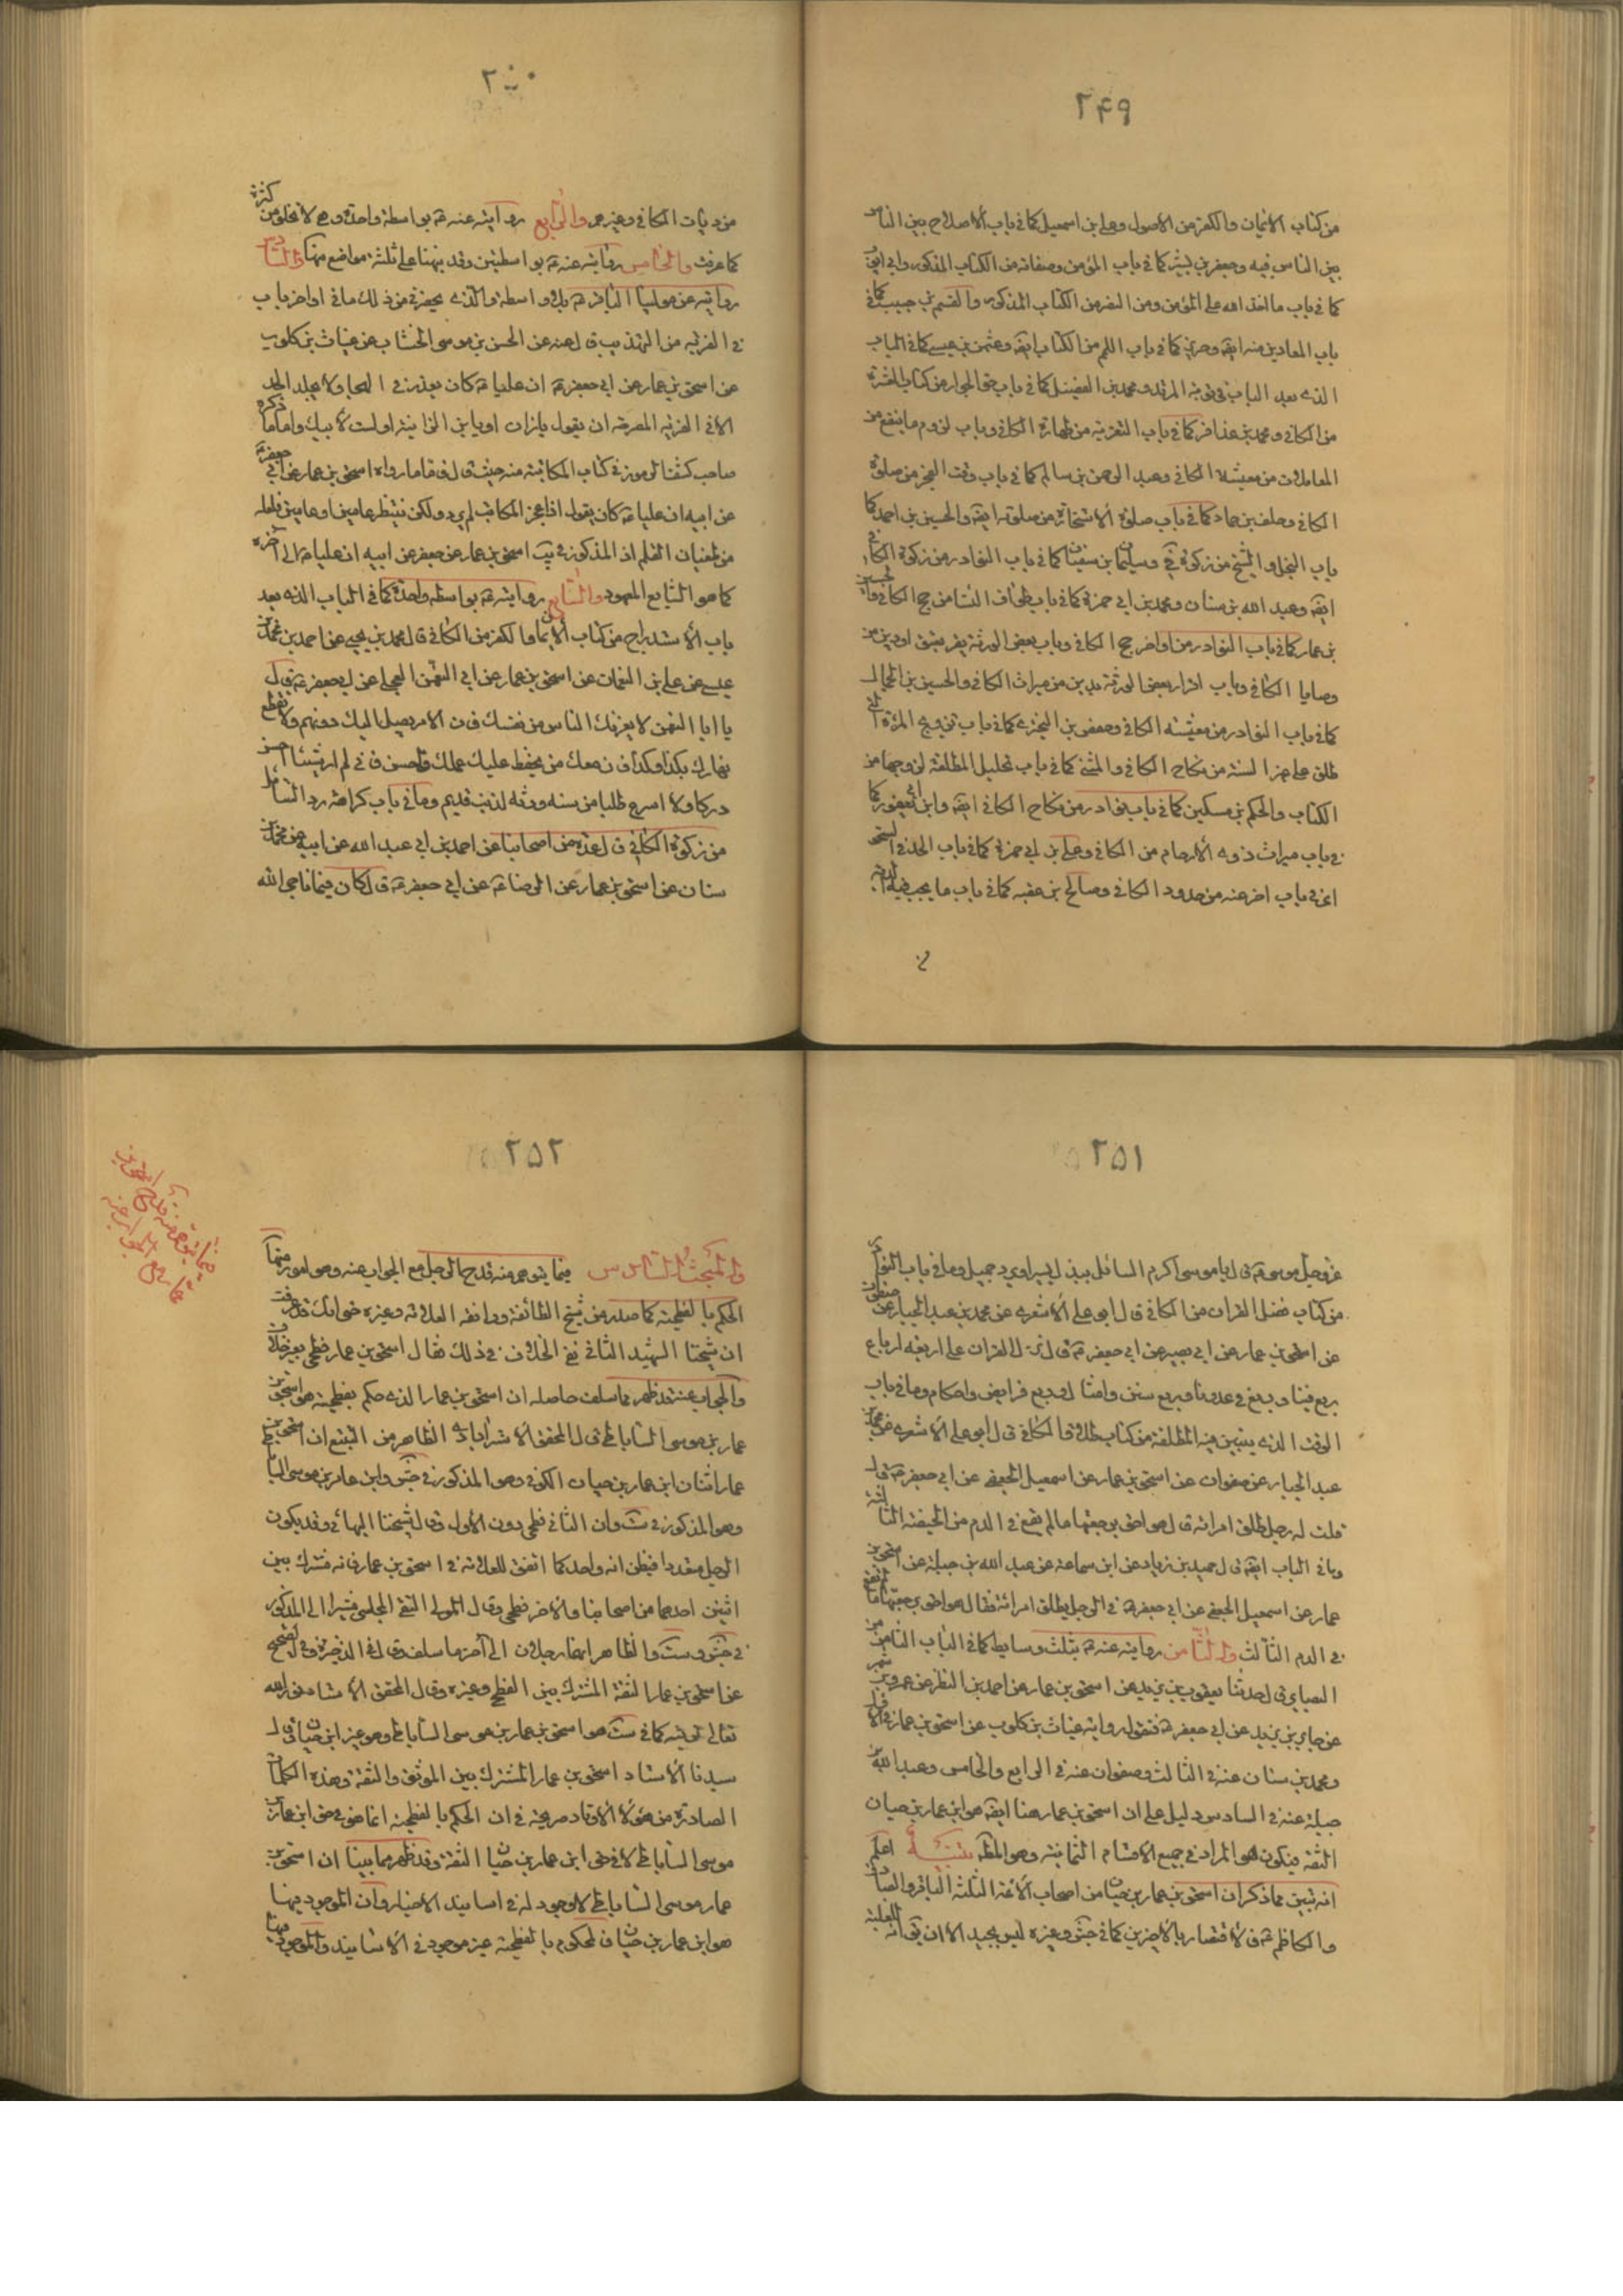 ٢٤٩
من كتاب الايمان والكفر من الاصول وعلي بن اسمعيل كما في باب الاصلاح بين الناس
بين الناس فيه وجعفر بن بشير كما في باب المؤمن وصفاته من الكتاب المذكور وابي
كما في باب ما اخذ الله على المؤمن ومن الكتاب المذكور والقسم بن حبيب كما في
باب المعادين منه ايضه وحريز كما في باب اللمم من الكتاب ايضه وعثمن بن عيسى كما في الباب
الذي بعد الباب ومحمد بن الفضيل كما في باب حق الجوار من كتاب العشرة
من الكافي ومحمد بن عذافر كما في باب التعزية من طهارة الكافي وباب لزوم ما ينفع من
المعاملات من معيشة الكافي وعبد الرحمن بن سالم كما في باب وقت الفجر من صلوة
الكافي وخلف بن حماد كما في باب صلوة الاستخارة من صلوته ايضه والحسين بن احمد كما
باب البخل و الشح من زكوة في وسليمان بن سفين كما في باب النوادر من زكوة الكافي
ايضه وعبد الله بن سنان ومحمد بن ابي حمزة كما في باب طواف النساء من حج الكافي والحسين
بن عمار كما في باب النوادر من اواخر حج الكافي وباب بعض الورثة يقر بعتق او دين من
وصايا الكافي وباب اقرار بعض الورثة بدين من ميراث الكافي والحسين بن الجمال
كما في باب النوادر من معيشة الكافي وحفص بن البختري كما في باب تزويج المرءة التي
طلق على غير السنة من نكاح الكافي والمثنى كما في باب تحليل المطلقة لزوجها من
الكتاب والحكم بن مسكين كما في باب نوادر من نكاح الكافي ايضه وابن ابي يعفور كما
في باب ميراث ذوي الارحام من الكافي وعلي بن ابي حمزة كما في باب الحد في السحق
اعني باب اخر عنه من حدود الكافي وصالح بن عقبه كما في باب ما يجب فيه الدية
٢٥٠
من ديات الكافي وغيرهم والرابع روايته عنه ع بواسطة واحدة وهي لا تخلو من كثرة
كما عرفت والخامس روايته عنه ع بواسطتين وقد نبهنا على ثلثة مواضع منها والسادس
روايته عن مولينا الباقر ع بلا واسطة والذي يحضرني من ذلك ما في اواخر باب
في الفريه من التهذيب قال عنه عن الحسن بن موسى الخشاب عن غياث بن كلوب
عن اسحق بن عمار عن ابي جعفر ع ان عليا ع كان يعزر في الهجاء ولا يجلد الحد
الا في الفريه المصرحة ان يقول يا زان او يا بن الزانية او لست لابيك واما ما ذكره
صاحب كشف الرموز في كتاب المكاتبة منه حيث قال فاما ما رواه اسحق بن عمار عن ابي جعفر ع
عن ابيه ان عليا ع كان يقول اذا عجز المكاتب لم يرد ولكن ينتظر عاما او عامين فلعله
من طغيان القلم اذ المذكور في يب اسحق بن عمار عن جعفر عن ابيه ان عليا ع الى اخره
كما هو الشايع المعهود والسابع روايته ع بواسطة واحدة كما في الباب الذي بعد
باب الاستدراج من كتاب الايمان والكفر من الكافي قال محمد بن يحيى عن احمد بن محمد بن
عيسى عن علي بن النعمان عن اسحق بن عمار عن ابي النعمن العجلي عن ابي جعفر ع قال
يا ابا النعمن لا يغرنك الناس من نفسك فان الامر يصل اليك دونهم ولا تقطع
نهارك بكذا وكذا فان معك من يحفظ عليك عملك واحسن فاني لم ار شيئا احسن
دركا ولا اسرع طلبا من حسنة محدثة لذنب قديم وما في باب كراهة رد السائل
من زكوة الكافي قال عدة من اصحابنا عن احمد بن ابي عبد الله عن ابيه عن محمد بن
سنان عن اسحق بن عمار عن الوصافي عن ابي جعفر ع قال كان فيما ناجى الله
٢٥١
عز وجل موسى ع قال يا موسى اكرم السائل ببذل يسير او برد جميل وما في باب النوادر
من كتاب فضل القران من الكافي قال ابو علي الاشعري عن محمد بن عبد الجبار عن صفوان
عن اسحق بن عمار عن ابي بصير عن ابي جعفر ع قال نزل القران على اربعة ارباع
ربع فينا وربع في عدونا وربع سنن وامثال وربع فرايض واحكام وما في باب
الوقت الذي يبين منه المطلقة من كتاب طلاق الكافي قال ابو علي الاشعري عن محمد بن
عبد الجبار عن صفوان عن اسحق بن عمار عن اسمعيل الجعفي عن ابي جعفر ع قال
قلت له رجل طلق امراته قال هو احق برجعتها ما لم تقع في الدم من الحيضة الثالثة
وما في الباب ايضه قال حميد بن زياد عن ابن سماعة عن عبد الله بن جبلة عن اسحق بن
عمار عن اسمعيل الجعفي عن ابي جعفر ع في الرجل يطلق امراته فقال هو احق برجعتها ما لم تقع
في الدم الثالث والثامن روايته عنه ع بثلث وسايط كما في الباب الثامن من
البصاير قال حدثنا يعقوب بن يزيد عن اسحق بن عمار عن احمد بن النظر عن عمرو بن شمر
عن جابر بن يزيد عن ابي جعفر ع فنقول رواية غياث بن كلوب عن اسحق بن عمار في الاول
ومحمد بن سنان عنه في الثالث وصفوان عنه في الرابع والخامس وعبد الله بن
جبلة عنه في السادس دليل على ان اسحق بن عمار هنا ايضه هو ابن عمار بن حيان
الثقة فيكون هو المراد في جميع الاقسام الثمانية وهو المظ تنبيه اعلم
انه تبين مما ذكر ان اسحق بن عمار بن حيان من اصحاب الائمة الثلثة الباقر والصادق
والكاظم ع فالاقتصار بالاخيرين كما في جش وغيره ليس بجيد الا ان يق انه لغلبة
٢٥٢
والمبحث السادس فيما يتوهم منه قدح حال الرجل مع الجواب عنه وهو امور منها
الحكم بالفطحية كما صدر من شيخ الطائفة ووافقه العلامة وغيره حتى انك قد عرفت
ان شيخنا الشهيد الثاني نفى الخلاف في ذلك فقال اسحق بن عمار فطحي بغير خلاف
والجواب عنه قد ظهر مما سلف حاصله ان اسحق بن عمار الذي حكم بفطحيته هو اسحق بن
عمار بن موسى الساباطي قال المحقق الاستراباذي الظاهر من التتبع ان اسحق بن
عمار اثنان ابن عمار بن حيان الكوفي وهو المذكور في جش وابن عمار بن موسى الساباطي
وهو المذكور في ست وان الثاني فطحي دون الاول وقال شيخنا البهائي وقد يكون
الرجل متعددا فيظن انه واحد كما اتفق للعلامة في اسحق بن عمار فانه مشترك بين
اثنين احدهما من اصحابنا والاخر فطحي وقال المولى التقي المجلسي مشيرا الى المذكور
في جش وست والظاهر انهما رجلان الى آخر ما سلف وقال في الذخيرة وفي الصحيح
عن اسحق بن عمار الثقة المشترك بين الفطحي وغيره وقال المحقق الاستاد نور الله
تعالى تربته كما في ست هو اسحق بن عمار بن موسى الساباطي وهو غير ابن حيان وقال
سيدنا الاستاد اسحق بن عمار المشترك بين الموثق والثقة وهذه الكلمات
الصادرة من هؤلاء الاوتاد صريحة في ان الحكم بالفطحية انما هو في حق ابن عمار بن
موسى الساباطي لا في حق ابن عمار بن حيان الثقة وقد ظهر مما بينا ان اسحق بن
عمار موسى الساباطي لا وجود له في اسانيد الاخبار وان الموجود فيها
هو ابن عمار بن حيان فالمحكوم بالفطحية غير موجود في الاسانيد والموجود فيها